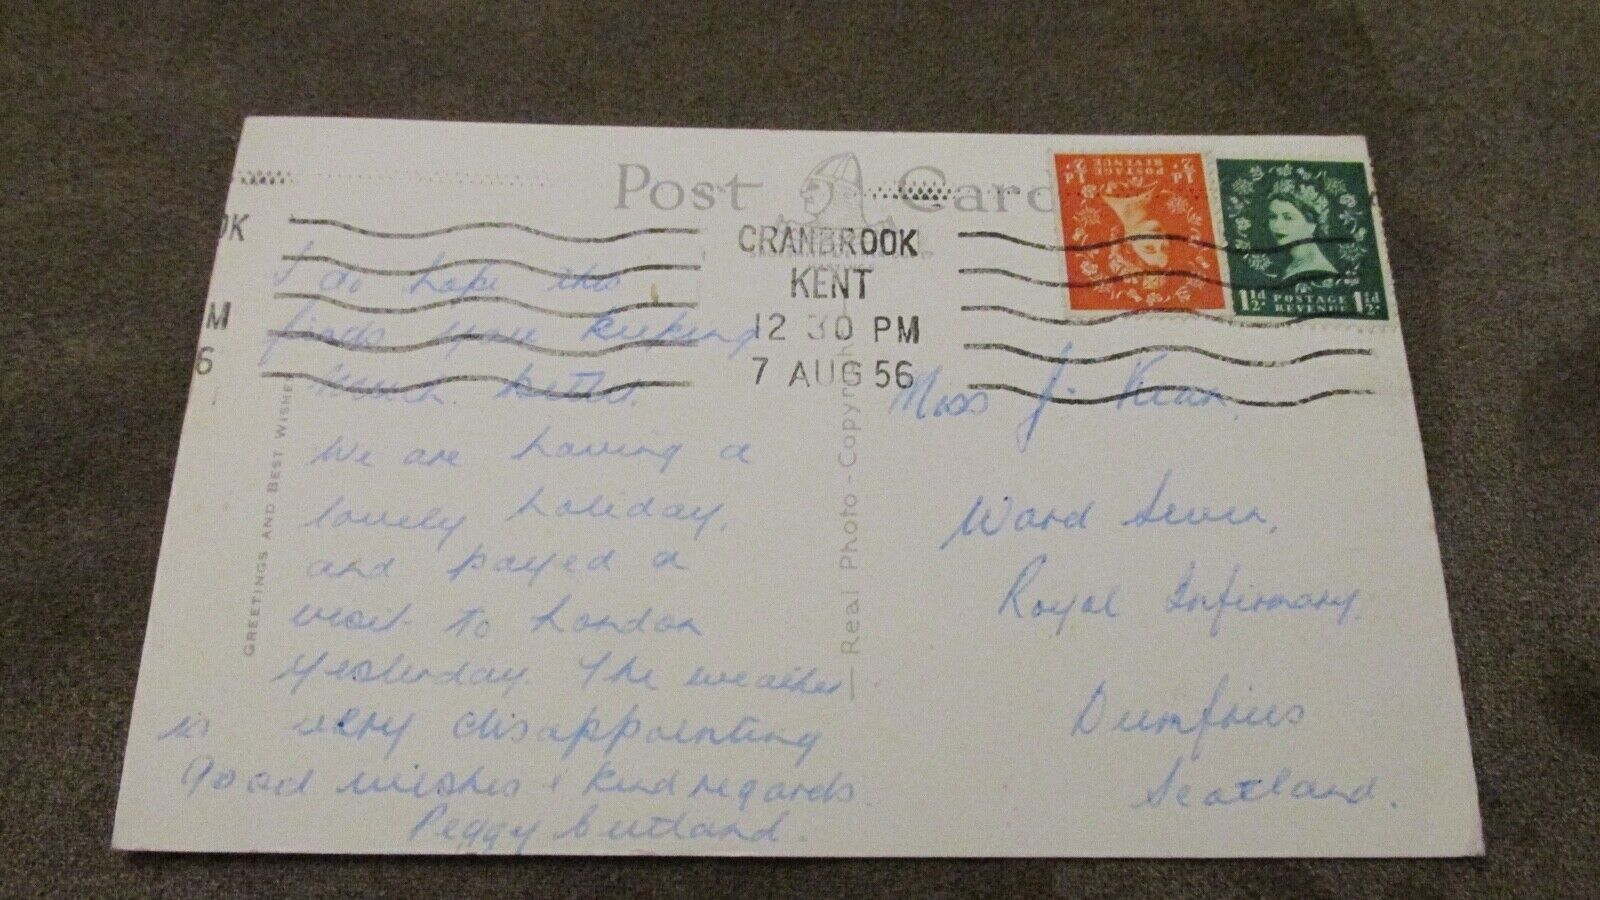 Post Card
½d. ½d.
POSTAGE
REVENUE
1½d. POSTAGE 1½d.
REVENUE
CRANBROOK
KENT
12 30 PM
7 AUG 56
OK
M
6
GREETINGS AND BEST WISHES
Real Photo-Copyright
I do hope this
finds you keeping
much better.
We are having a
lovely holiday,
and payed a
visit to London
yesterday. The weather
is very disappointing
Good wishes & kind regards.
Peggy
Miss J.
Ward Seven,
Royal Infirmary,
Dumfries
Scotland.